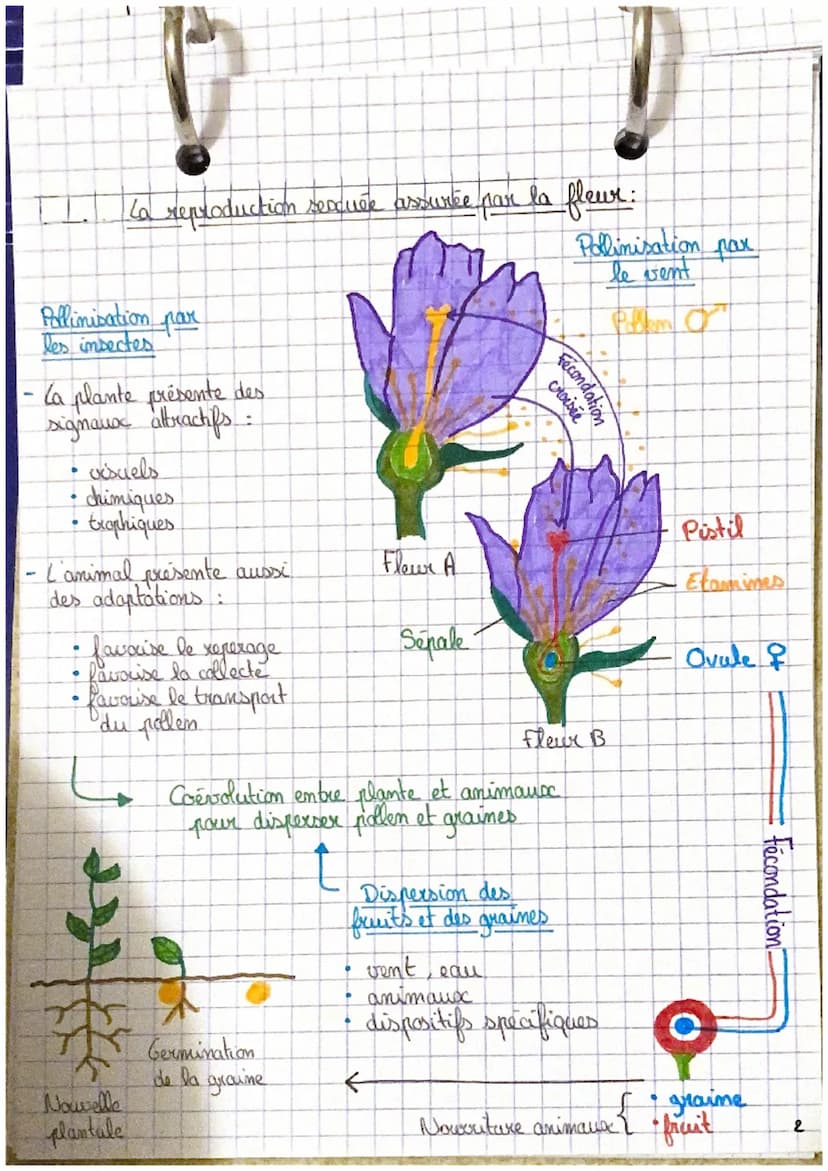 I. La reproduction sexuée assurée par la fleur :
Pollinisation par
le vent
Pollen ♂
Pollinisation par
les insectes
- La plante présente des
signaux attractifs :
• visuels
• chimiques
• trophiques
- L'animal présente aussi
des adaptations :
• favorise le reperage
• favorise la collecte
• favorise le transport
du pollen
Fécondation
croisée
Fleur A
Pistil
Etamines
Sépale
Ovule ♀
Fleur B
Coévolution entre plante et animaux
pour disperser pollen et graines
Fécondation
Dispersion des
fruits et des graines
• vent, eau
• animaux
• dispositifs spécifiques
Germination
de la graine
Nouvelle
plantule
Nourriture animaux {
• graine
• fruit
2